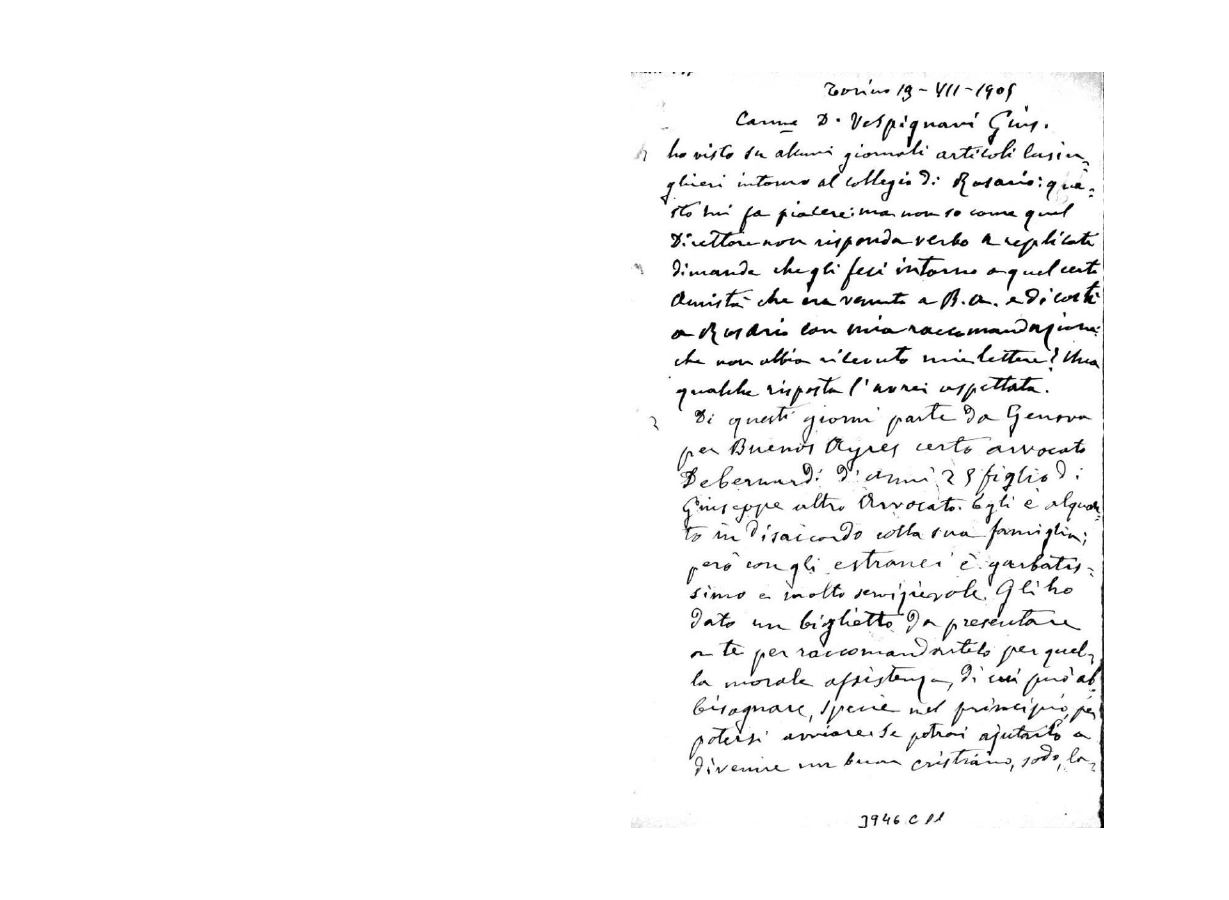 Torino 19-VII-1905
Carme D. Vespignani Gius.
ho visto su alcuni giornali articoli lusin-
ghieri intorno al collegio di Rosario: que-
sto mi fa piacere: ma non so come quel
Direttore non risponda verbo a replicate
dimande che gli feci intorno a quel certo
che era venuto a B.A. e di costì
a Rosario con mia raccomandazione:
che non abbia ricevuto mie lettere? Una
qualche risposta l'avrei aspettata.
Di questi giorni parte da Genova
per Buenos Ayres certo avvocato
Debernardi d'anni 25 figlio di
Giuseppe altro Avvocato. Egli è alquan-
to in disaccordo colla sua famiglia;
però con gli estranei è garbatis-
simo e molto servizievole. Gli ho
dato un biglietto da presentare
a te per raccomandartelo per quel-
la morale assistenza, di cui può ab
bisognare, specie nel principio, per
potersi avviare. Se potrai ajutarlo a
divenire un buon cristiano, sodo, la-
3946 C